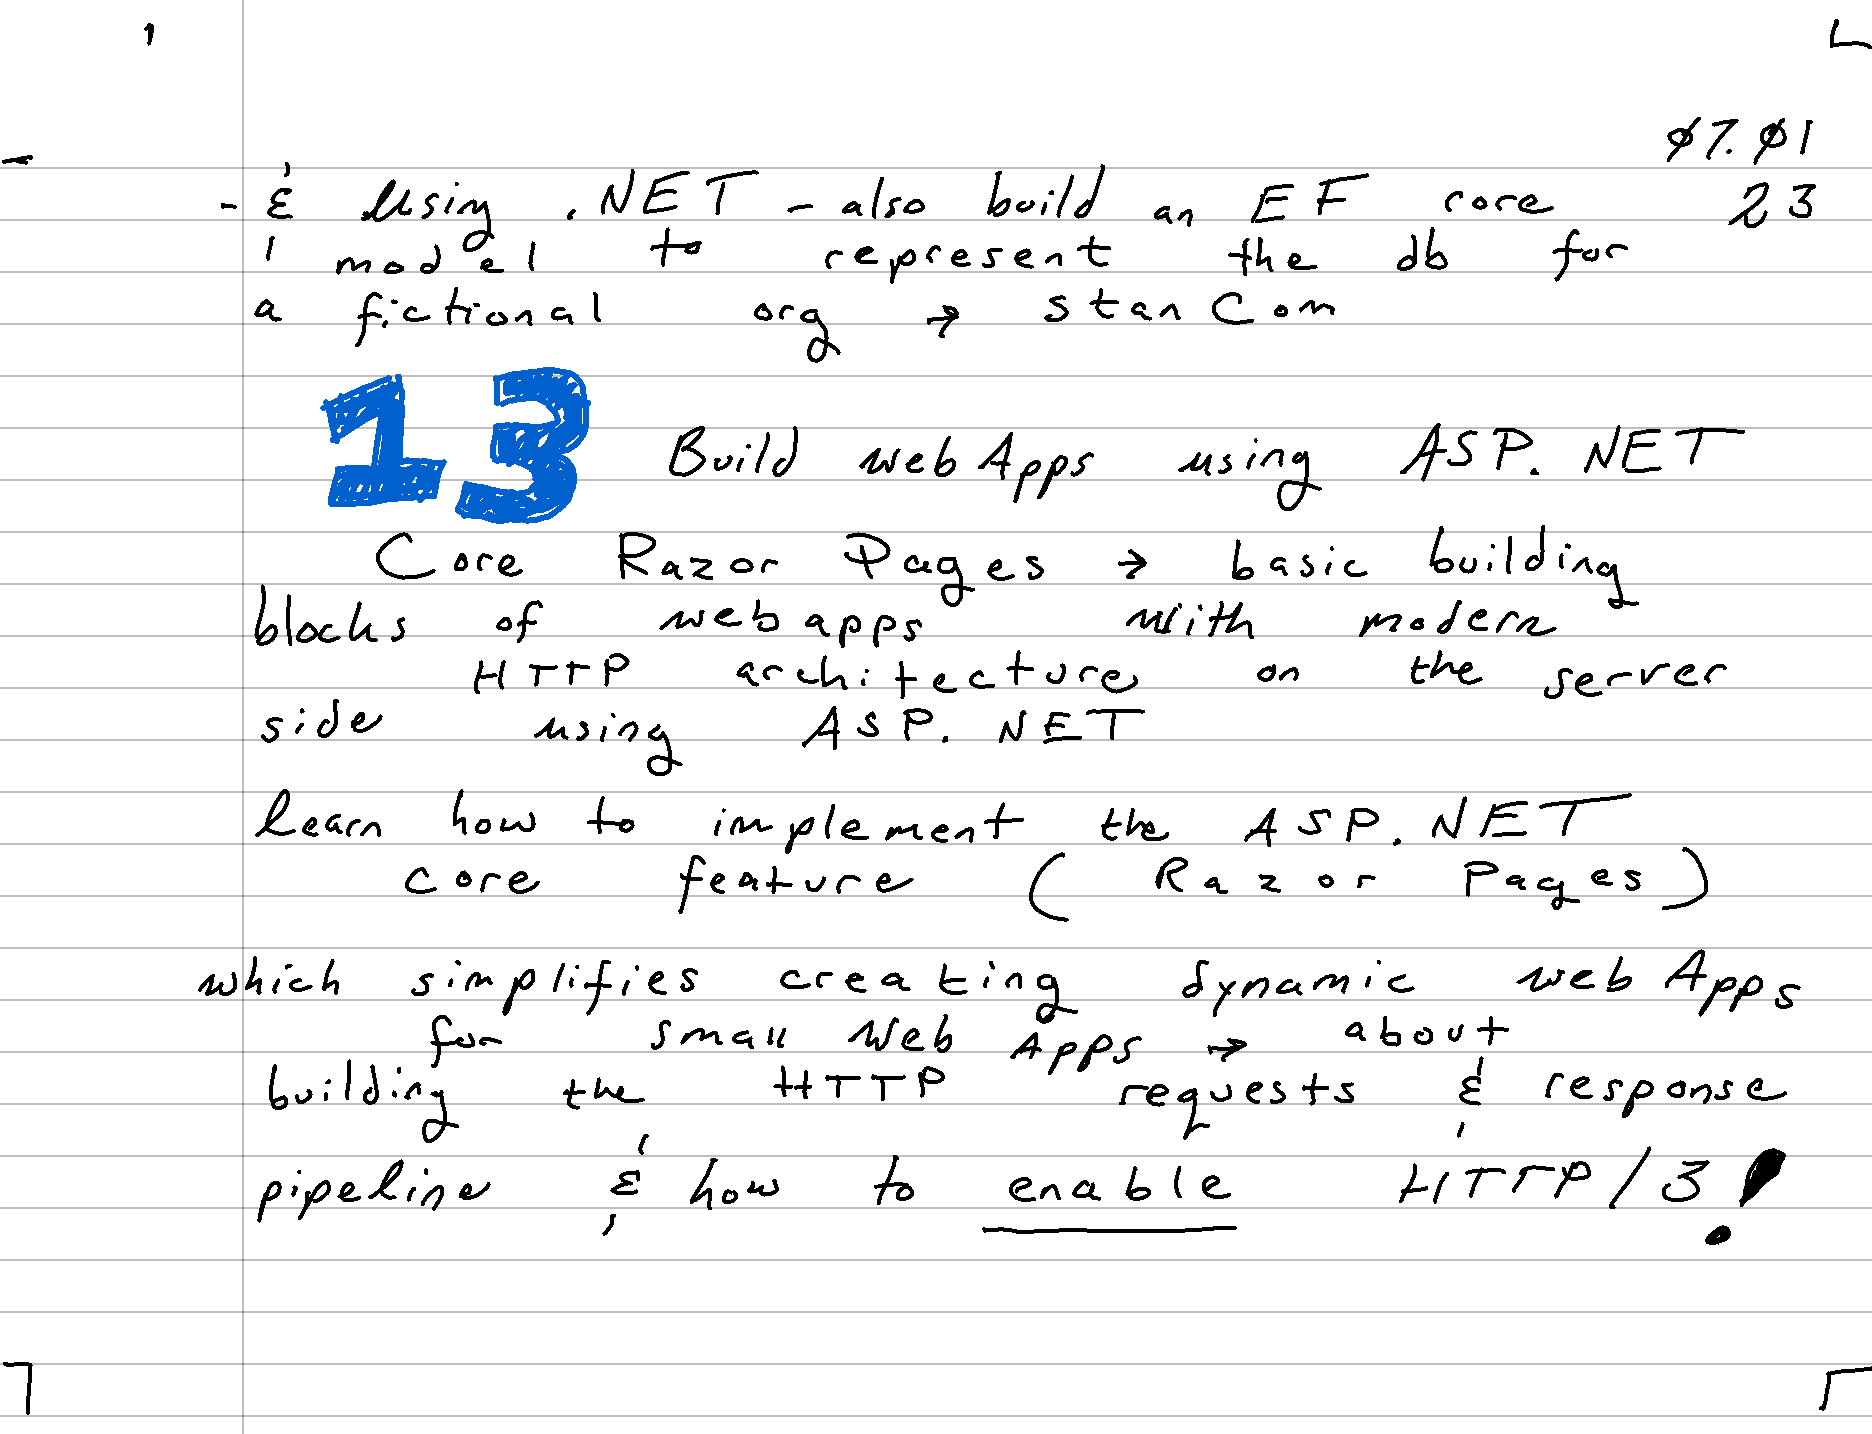 07.01
- & Using .NET - also build an EF core 23
model to represent the db for
a fictional org → stanCom
13 Build webApps using ASP.NET
Core Razor Pages → basic building
blocks of webapps with modern
HTTP architecture on the server
side using ASP.NET
learn how to implement the ASP.NET
core feature (Razor Pages)
which simplifies creating dynamic webApps
for small Web Apps → about
building the HTTP requests & response
pipeline & how to enable HTTP/3!